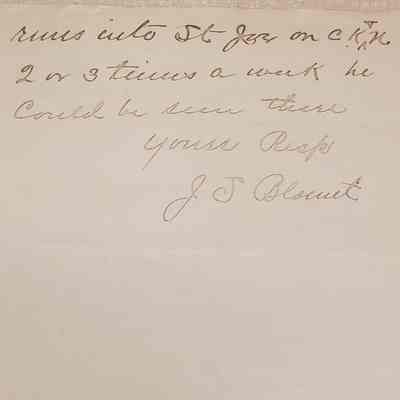 runs into St Joe on C. K. T. N.
2 or 3 times a week he
Could be seen there
Yours Resp
J S